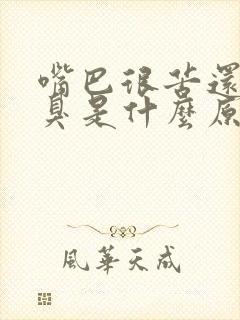 嘴巴很苦還
臭是什麼原
風華天成